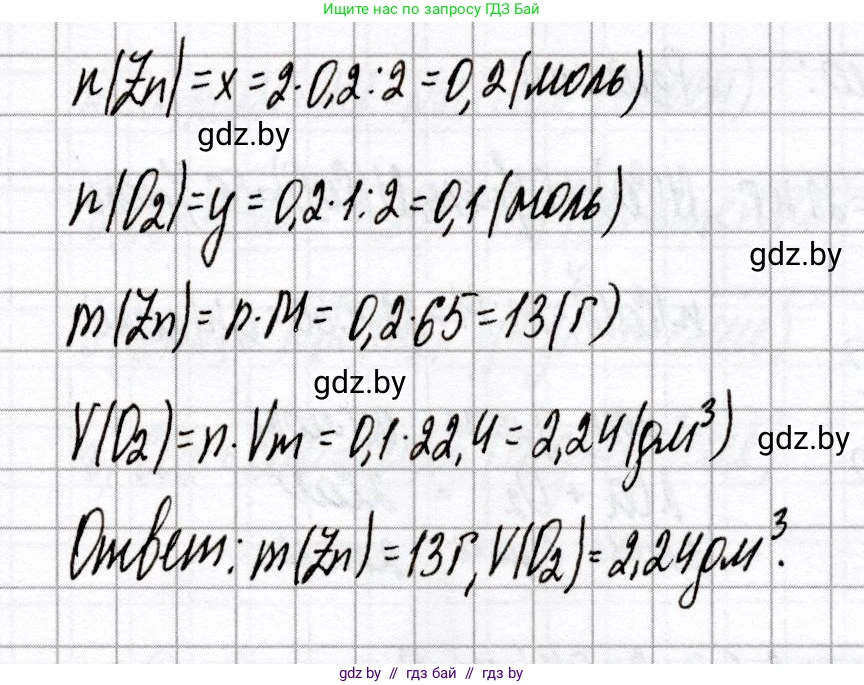 Ищите нас по запросу ГДЗ Бай
n(Zn) = x = 2·0,2:2 = 0,2 (моль)
gdz.by
n(O₂) = y = 0,2·1:2 = 0,1 (моль)
gdz.by
m(Zn) = n·M = 0,2·65 = 13 (г)
gdz.by
V(O₂) = n·Vm = 0,1·22,4 = 2,24 (дм³)
gdz.by
Ответ: m(Zn) = 13 г, V(O₂) = 2,24 дм³.
gdz by // гдз бай // гдз by